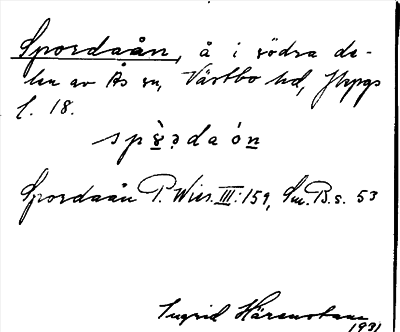 Spordaån, å i södra de-
len av Ås sn, Västbo hd, Jkpgs
l. 18.
spò̤rdaón
Spordaån P. Wies. III:159, Sm.B.s. 53
Ingrid Härenstam
1931